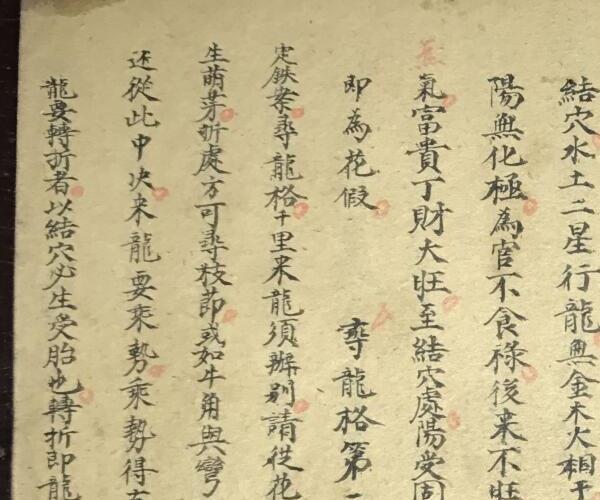 結穴水土二星行龍無金木火相
陽無化極為官不食祿後来不旺
氣富貴丁財大旺至結穴處陽受
即為花假　尋龍格第
定鉄案尋龍格千里来龍須辦别請從花
生萌芽折處方可尋枝莭或如牛角與彎
述從此中决来龍要乘勢乘勢得
龍要轉折者以結穴必生受胎也轉折即龍